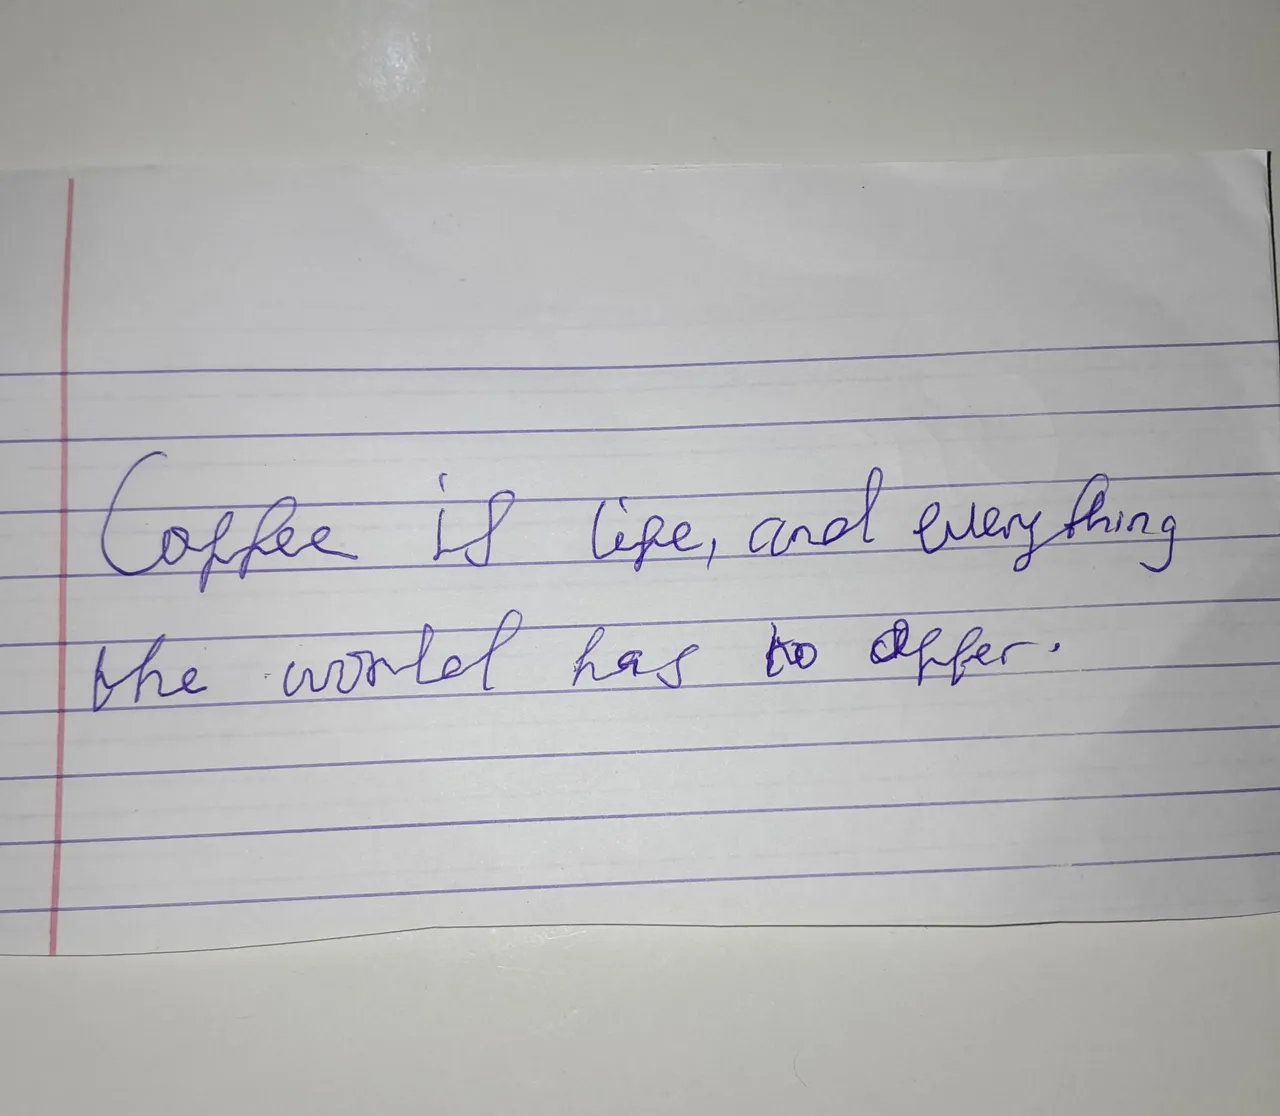 Coffee is life, and everything
the world has to offer.